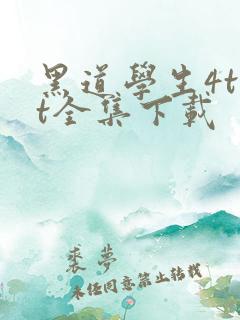 黑道學生4t
t全集下載
裘夢
未经同意禁止转载